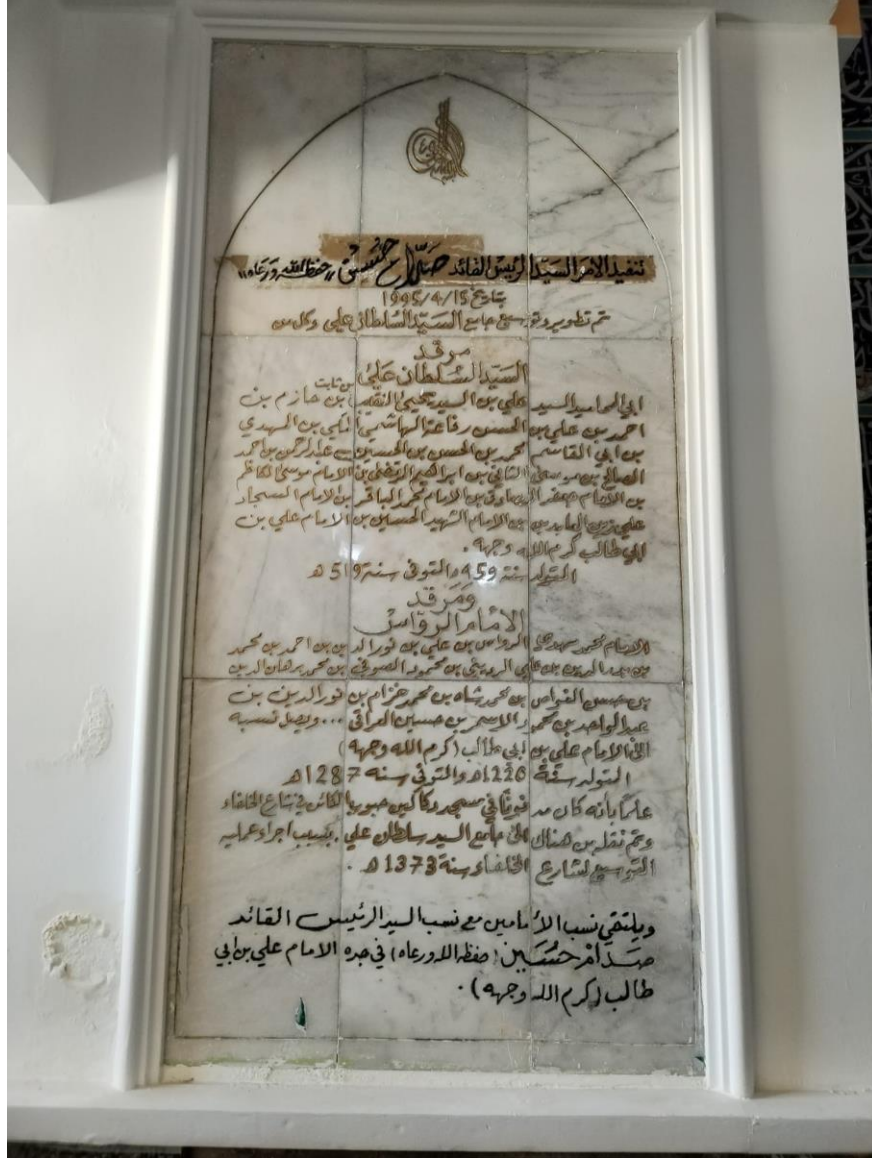 تنفيذ الأمر السيد الرئيس القائد صدام حسين "حفظه الله ورعاه"
بتاريخ 1995/4/15
تم تطوير وتوسيع جامع السيد السلطان علي وكل من
مرقد
السيد السلطان علي
ابي المحاميد السيد علي بن السيد يحيى النقيب بن ثابت بن حازم بن
احمد بن علي بن الحسن رفاعة الهاشمي المكي بن المهدي
بن ابي القاسم محمد بن الحسن بن الحسين بن عبدالرحمن بن احمد
الصالح بن موسى الثاني بن ابراهيم المرتضى بن الامام موسى الكاظم
بن الامام جعفر الصادق بن الامام محمد الباقر بن الامام السجاد
علي زين العابدين بن الامام الشهيد الحسين بن الامام علي بن
ابي طالب كرم الله وجهه .
المتولد سنة 459 والمتوفى سنة 519 هـ
ومرقد
الامام الرواس
الامام محمد مهدي الرواس بن علي بن نورالدين بن احمد بن محمد
بن بدرالدين بن علي الرديني بن محمود الصوفي بن محمد برهان الدين
بن حسن الغواص بن محمد شاه بن محمد خزام بن نورالدين بن
عبدالواحد بن محمود الاسمر بن حسين العراقي ... ويصل نسبه
الى الامام علي بن ابي طالب (كرم الله وجهه)
المتولد سنة 1220هـ والمتوفي سنه 1287 هـ
علما بأنه كان مدفونا في مسجد دكاكين حبوب الكائن في شارع الخلفاء
وتم نقله من هناك الى جامع السيد سلطان علي . بسبب اجراء عمليه
التوسيع لشارع الخلفاء سنة 1373 هـ .
ويلتقي نسب الأمامين مع نسب السيد الرئيس القائد
صدام حسين (حفظه الله ورعاه) في جده الامام علي بن ابي
طالب (كرم الله وجهه) .